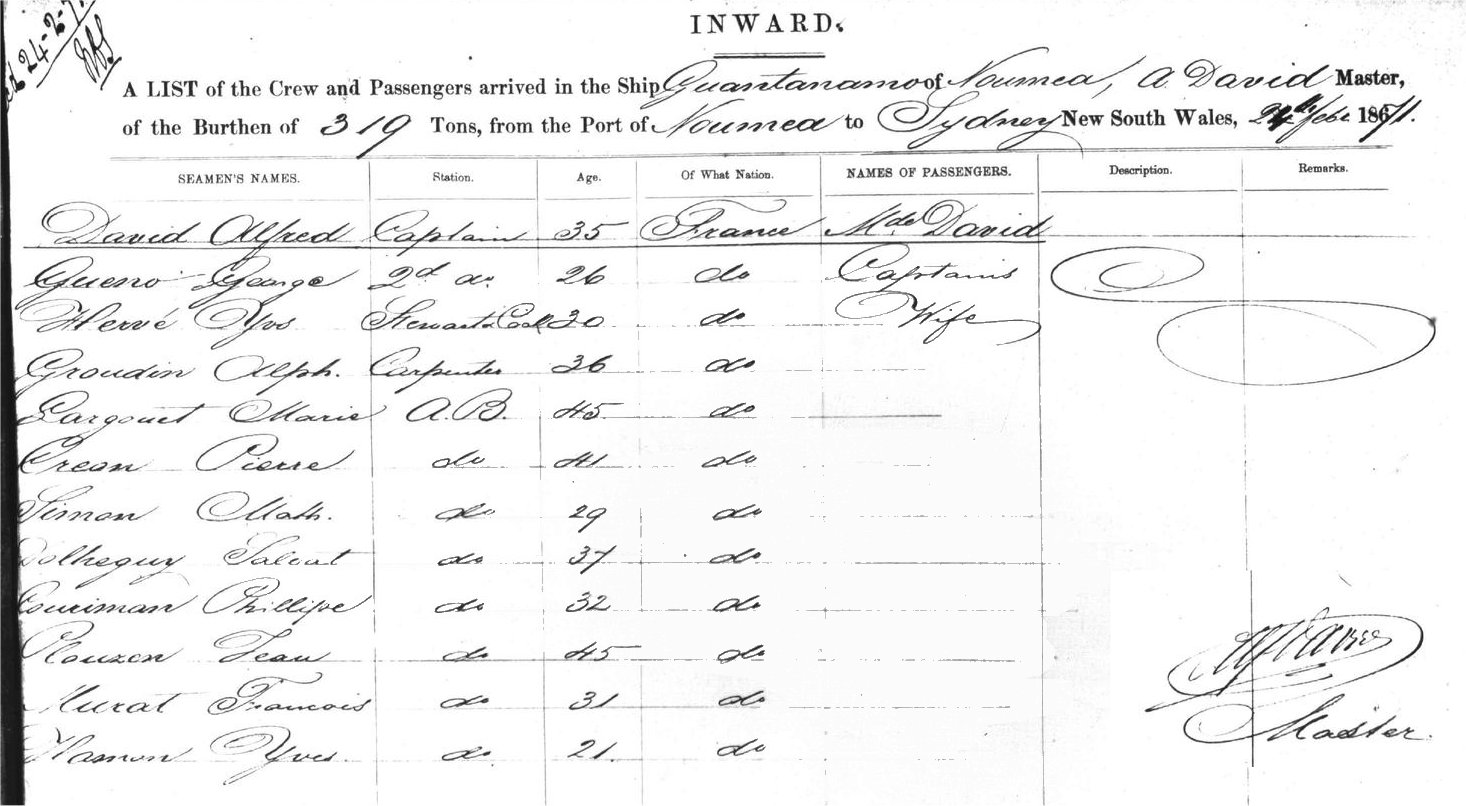 24-2-7
INWARD.
A LIST of the Crew and Passengers arrived in the Ship Guantanamo of Noumea, A. David Master,
of the Burthen of 319 Tons, from the Port of Noumea to Sydney New South Wales, 24th Feb 1871.
SEAMEN'S NAMES. Station. Age. Of What Nation. NAMES OF PASSENGERS. Description. Remarks.
David Alfred Captain 35 France Mde David
Gueno George 2d do. 26 do Captains
Hervé Yvs Stewart & Cook 30 do Wife
Groudin Alph. Carpenter 36 do
Largouet Marie A.B. 45 do
Crean Pierre do 41 do
Simon Math. do 29 do
Dolheguy Salvat do 37 do
Couriman Phillipe do 32 do
Plouzen Jean do 45 do
Murat Francois do 31 do
Hamon Yves do 21. do
Master.